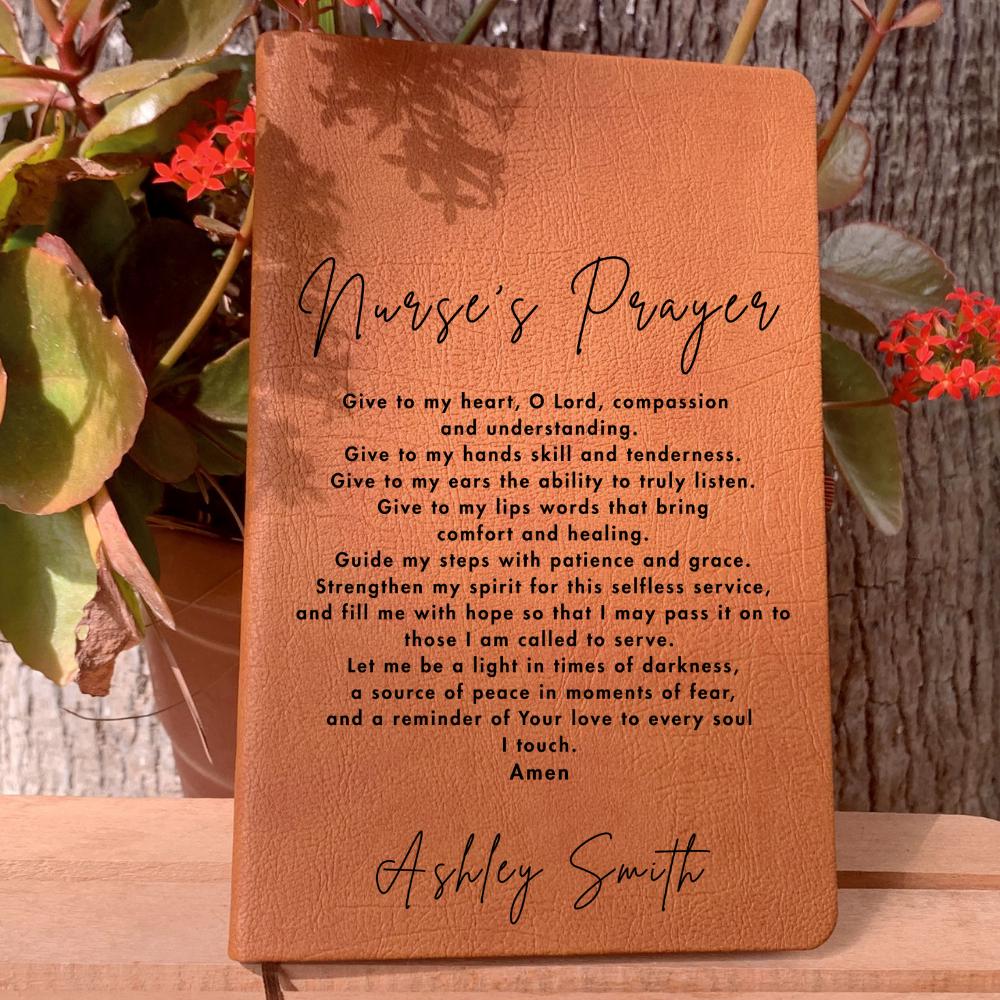 Nurse's Prayer
Give to my heart, O Lord, compassion
and understanding.
Give to my hands skill and tenderness.
Give to my ears the ability to truly listen.
Give to my lips words that bring
comfort and healing.
Guide my steps with patience and grace.
Strengthen my spirit for this selfless service,
and fill me with hope so that I may pass it on to
those I am called to serve.
Let me be a light in times of darkness,
a source of peace in moments of fear,
and a reminder of Your love to every soul
I touch.
Amen
Ashley Smith